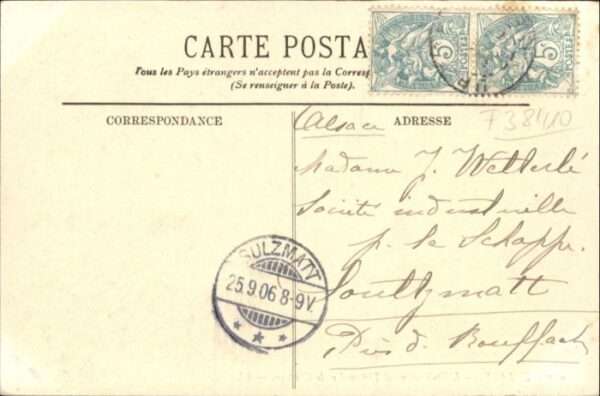 CARTE POSTA
Tous les Pays étrangers n'acceptent pas la Corresp
(Se renseigner à la Poste).
5 5
CORRESPONDANCE
ADRESSE
F38410
Alsace
Madame J. Wetterlé
Société industrielle
p. la Schappe.
Soultzmatt
Près d. Rouffach
SULZMATT
25.9.06 8-9V.